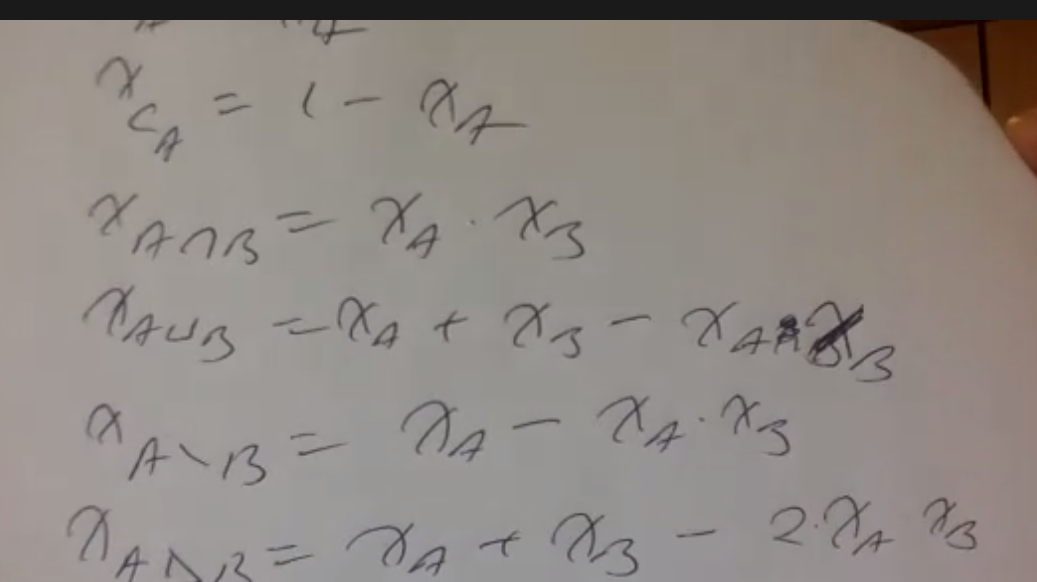 χ_{C_A} = 1 - χ_A
χ_{A∩B} = χ_A · χ_B
χ_{A∪B} = χ_A + χ_B - χ_{A∩B}
χ_{A∖B} = χ_A - χ_A · χ_B
χ_{A△B} = χ_A + χ_B - 2·χ_A χ_B